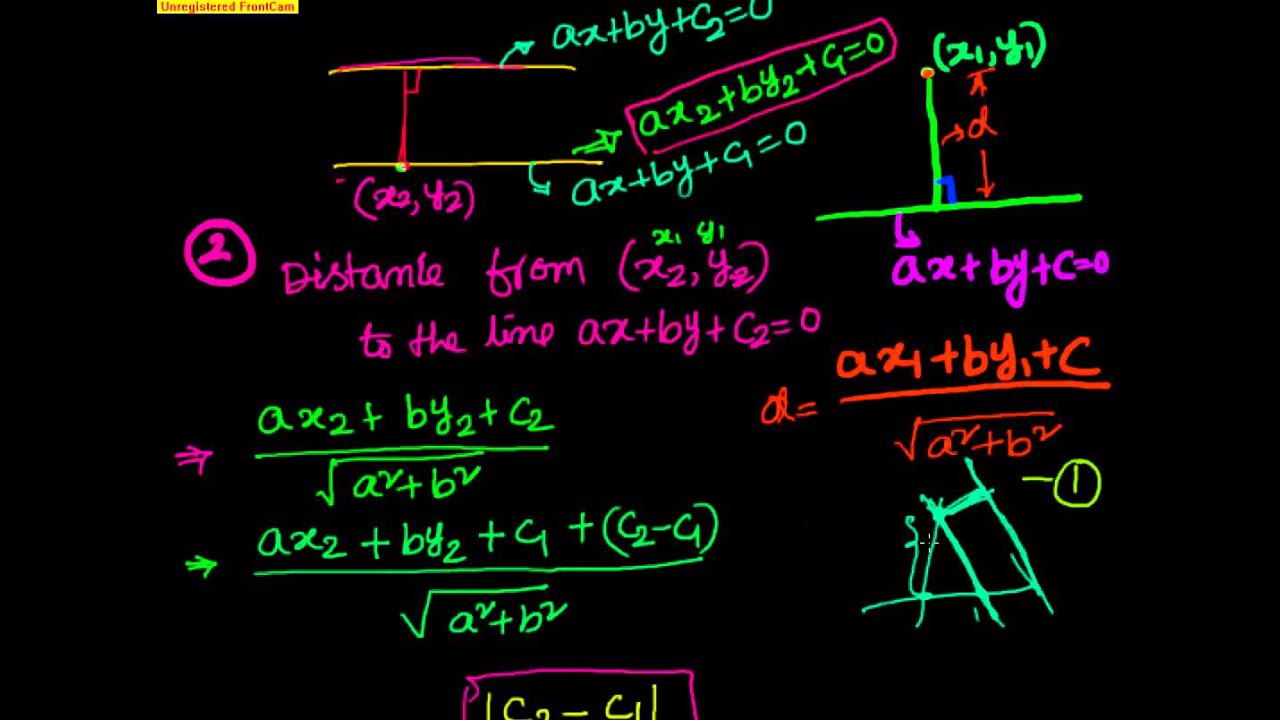 Unregistered FrontCam
ax+by+C₂=0
ax₂+by₂+C₁=0
ax+by+C₁=0
(x₂,y₂)
(x₁,y₁)
d
ax+by+C=0
② Distance from (x₂,y₂)
x₁ y₁
to the line ax+by+C₂=0
d= ax₁+by₁+C
√a²+b²
-①
⇒ ax₂+by₂+C₂
√a²+b²
⇒ ax₂+by₂+C₁+(C₂-C₁)
√a²+b²
|C₂-C₁|